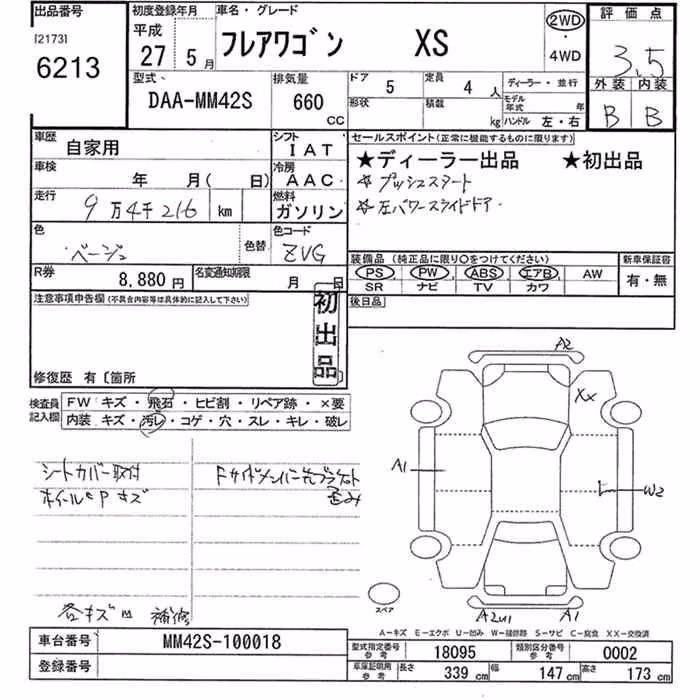 出品番号
[2173]
6213
初度登録年月
平成
27 5 月
車名・グレード
フレアワゴン XS
2WD
・
4WD
評価点
3.5
外装 内装
B B
型式
DAA-MM42S
排気量
660
CC
ドア
5
定員
4 人
ディーラー・並行
形状
積載
kg
モデル
年式
年
ハンドル 左・右
車歴
自家用
シフト
IAT
車検
年 月( 日)
冷房
AAC
走行
9万4千216 km
燃料
ガソリン
色
ベージュ
色替
色コード
ZVG
R券
8,880 円
名変通知期限
月 日
セールスポイント(正常に機能するものに限ります)
★ディーラー出品 ★初出品
☆プッシュスタート
☆左パワースライドドア
装備品(純正品に限り○をつけてください)
新車保証書
PS PW ABS エアB AW
SR ナビ TV カワ
有・無
後日品
注意事項申告欄(不具合内容等は具体的に記入して下さい)
初出品
修復歴 有〔箇所
検査員
記入欄
FW キズ・飛石・ヒビ割・リペア跡・×要
内装 キズ・汚レ・コゲ・穴・スレ・キレ・破レ
シートカバー取付
ホイールcPキズ
Fサイドメンバー先ブラケット
歪み
各キズ 補修
A2
XX
A1
W2
スペア
A2U1
A1
A-キズ E-エクボ U-凹み W-補修跡 S-サビ C-腐食 XX-交換済
車台番号
MM42S-100018
登録番号
型式指定番号
参考
18095
類別区分番号
参考
0002
車庫証明用
参考
長さ 339 cm 幅 147 cm 高さ 173 cm